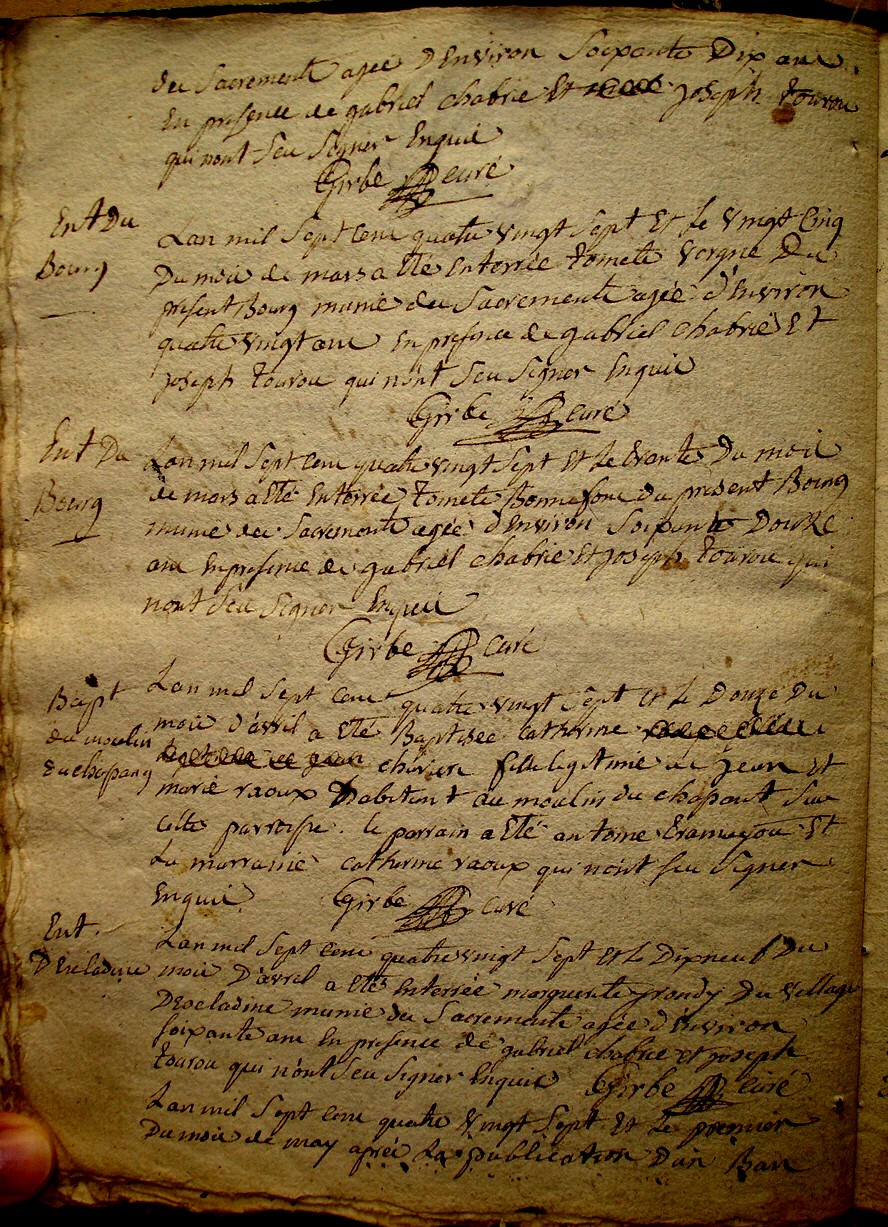 des Sacrements agée D'Environ Soixante Dix ans
En presence de gabriel chabrie Et joseph tourou
qui n'ont Seu Signer Enquis
Girbe curé
Ent Du
Bourg
Lan mil Sept Cent quatre vingt Sept Et le vingt Cinq
Du mois de mars a Eté Enterrée tomete vergne Du
present Bourg munie des Sacrements agée d'Environ
quatre vingt ans En presence de gabriel chabrie Et
joseph tourou qui n'ont Seu Signer Enquis
Girbe curé
Ent Du
Bourg
Lan mil Sept Cent quatre vingt Sept Et le trante Du mois
de mars a Eté Enterrée tomete Bonnefont du present Bourg
munie des Sacrements agée d'Environ Soixante Douze
ans En presence de gabriel chabrie Et joseph tourou qui
n'ont Seu Signer Enquis
Girbe curé
Bapt
du moulin
du chapang
Lan mil Sept Cent quatre vingt Sept Et le Douze Du
mois d'avril a Eté Baptisée catherine
fille legitime de jean Et
marie raoux habitant au moulin du chapant Sur
cette parroisse. le parrain a Eté antoine Et
La marraine catherine raoux qui n'ont Seu Signer
Enquis Girbe curé
Ent.
D'Escladine
Lan mil Sept Cent quatre vingt Sept Et le Dixneuf Du
mois D'avril a Eté Enterrée marguerite Du village
D'escladine munie des Sacrements agée d'Environ
soixante ans En presence de gabriel chabrie et joseph
tourou qui n'ont Seu Signer Enquis Girbe curé
Lan mil Sept Cent quatre vingt Sept Et le premier
Du mois de may aprés La publication D'un Ban